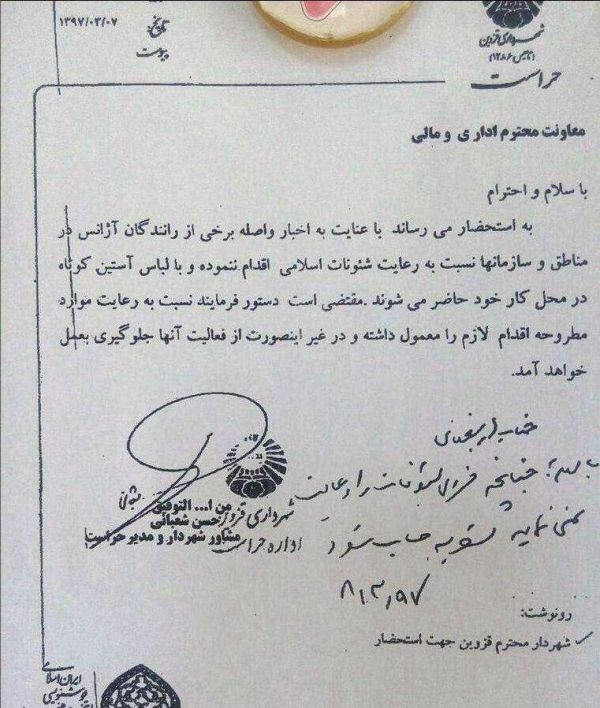 تاریخ: ۱۳۹۷/۰۳/۰۷
پیوست
شهرداری قزوین
(تاسیس ۱۲۸۶)
حراست
معاونت محترم اداری و مالی
با سلام و احترام
به استحضار می رساند با عنایت به اخبار واصله برخی از رانندگان آژانس در
مناطق و سازمانها نسبت به رعایت شئونات اسلامی اقدام ننموده و با لباس آستین کوتاه
در محل کار خود حاضر می شوند .مقتضی است دستور فرمایند نسبت به رعایت موارد
مطروحه اقدام لازم را معمول داشته و در غیر اینصورت از فعالیت آنها جلوگیری بعمل
خواهد آمد.
جناب
چنانچه شئونات را رعایت
نمی نماید تسویه حساب شود
۹۷/۳/۸
من ا... التوفیق
حسن شعبانی
مشاور شهردار و مدیر حراست
شهرداری قزوین
اداره حراست
رونوشت:
✓ شهردار محترم قزوین جهت استحضار